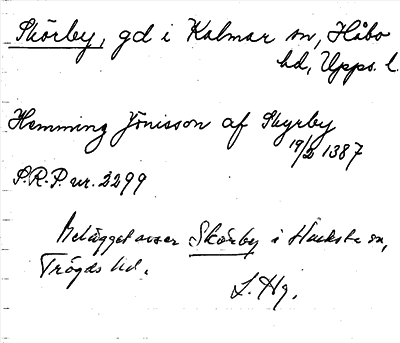 Skörby, gd i Kalmar sn, Håbo
hd, Upps. l.
Hemming Jönisson af Skyrby
19/2 1387
S.R.P. nr. 2299
Belägget avser Skörby i Häcksta sn,
Trögds hd.
L. Hg.